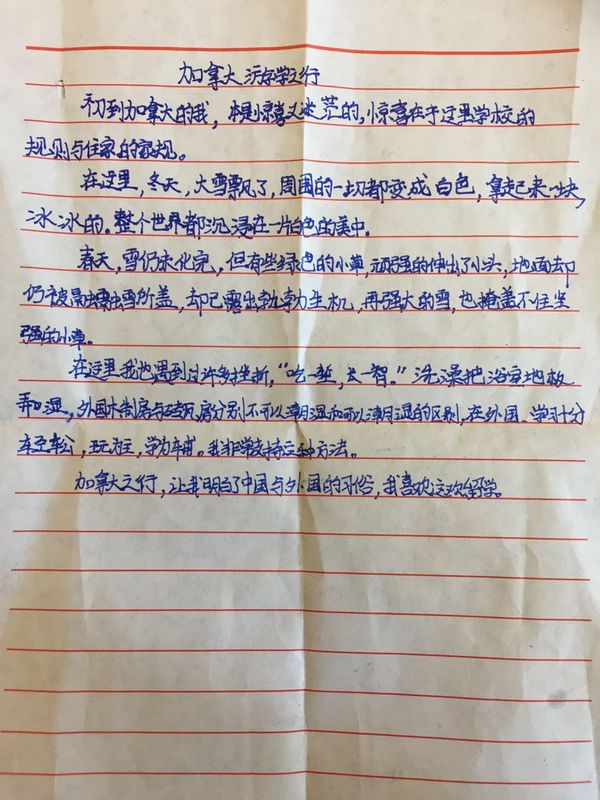 加拿大游学之行
初到加拿大的我,本是惊喜又迷茫的,惊喜在于这里学校的
规则与住家的家规。
在这里,冬天,大雪飘了,周围的一切都变成白色,拿起来一块,
冰冰的。整个世界都沉浸在一片白色的美中。
春天,雪仍未化完,但有些绿色的小草,顽强的伸出了小头,地面却
仍被雪所盖,却已露出勃勃生机,再强大的雪,也掩盖不住坚
强的小草。
在这里我也遇到过许多挫折,“吃一堑,长一智。”洗澡把浴室地板
弄湿,外国木制房与砖瓦房分别不可以潮湿和可以潮湿的区别,在外国、学习十分
轻松,玩为主,学为辅。我非常支持这种方法。
加拿大之行,让我明白了中国与外国的习俗,我喜欢这次留学。